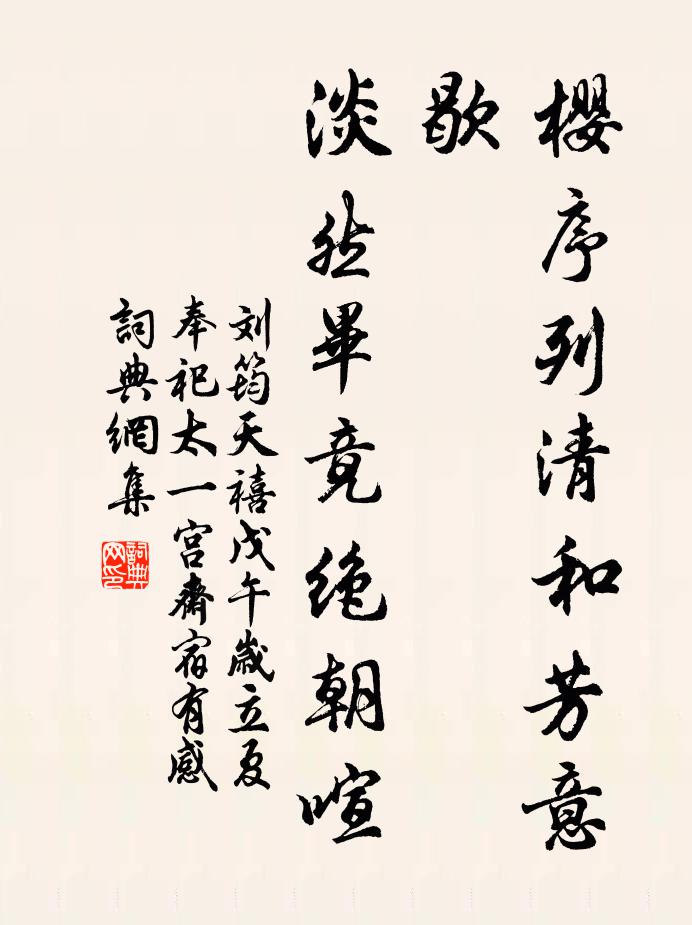 櫻序列清和芳意
歇
淡然畢竟絶朝喧
刘筠天禧戊午歲立夏
奉祀太一宫齋宿有感
詞典網集
詞典
网印